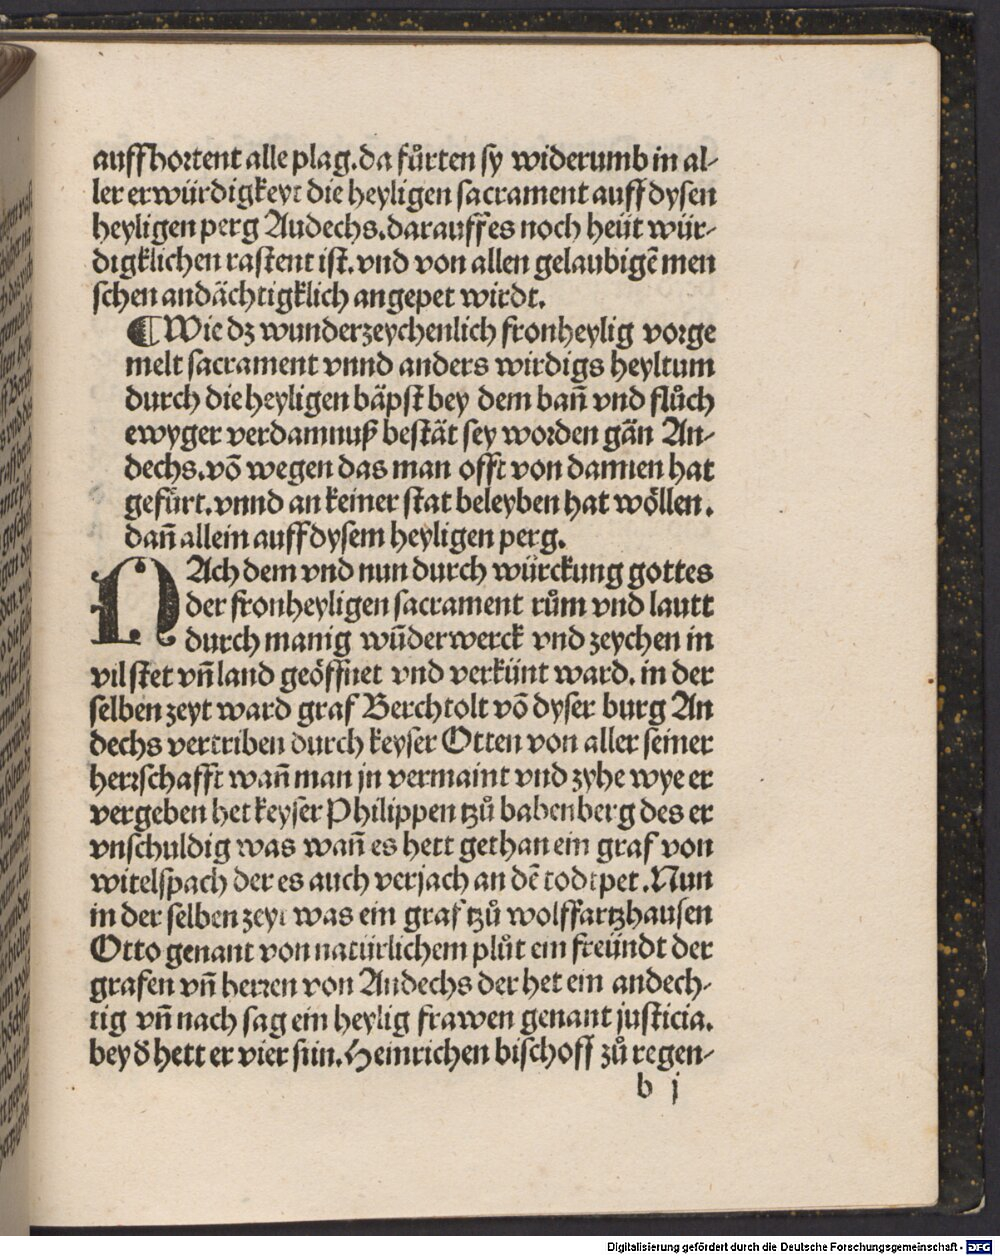 auffhortent alle plag. da fůrten sy widerumb in al-
ler erwürdigkeyt die heyligen sacrament auff dysen
heyligen perg Andechs. darauff es noch heüt wür-
digklichen rastent ist. vnd von allen gelaubigē men
schen andächtigklich angepet wirdt.
¶ Wie dz wunderzeychenlich fronheylig vorge
melt sacrament vnnd anders wirdigs heyltum
durch die heyligen bäpst bey dem bañ vnd flůch
ewyger verdamnuß bestät sey worden gän An-
dechs. võ wegen das man offt von dannen hat
gefürt. vnnd an keiner stat beleyben hat wöllen.
dañ allein auff dysem heyligen perg.
NAch dem vnd nun durch würckung gottes
der fronheyligen sacrament rům vnd lautt
durch manig wūderwerck vnd zeychen in
vil stet vñ land geöffnet vnd verkünt ward. in der
selben zeyt ward graf Berchtolt võ dyser burg An
dechs vertriben durch keyser Otten von aller seiner
herrschafft wañ man jn vermaint vnd zyhe wye er
vergeben het keyser Philippen tzů babenberg des er
vnschuldig was wañ es hett gethan ein graf von
witelspach der es auch verjach an dē todtpet. Nun
in der selben zeyt was ein graf tzů wolffartzhausen
Otto genant von natürlichem plůt ein freündt der
grafen vñ herren von Andechs der het ein andech-
tig vñ nach sag ein heylig frawen genant justicia.
bey d̄ hett er vier sün. Heinrichen bischoff zů regen-
b j
Digitalisierung gefördert durch die Deutsche Forschungsgemeinschaft - DFG